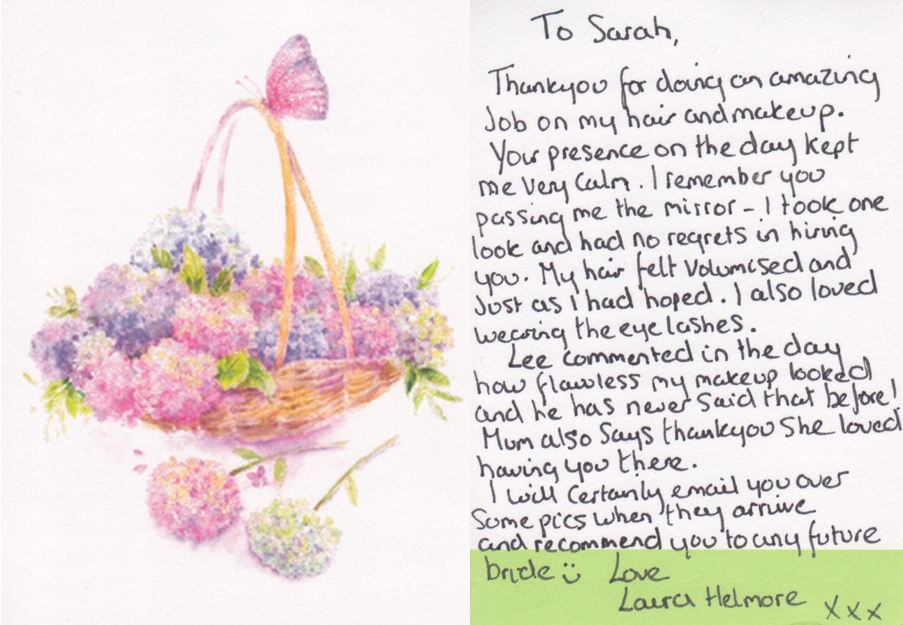 To Sarah,
Thankyou for doing an amazing
Job on my hair and makeup.
Your presence on the day kept
me very calm. I remember you
passing me the mirror - I took one
look and had no regrets in hiring
you. My hair felt volumised and
Just as I had hoped. I also loved
wearing the eye lashes.
Lee commented in the day
how flawless my makeup looked
and he has never said that before!
Mum also says thankyou She loved
having you there.
I will certainly email you over
Some pics when they arrive
and recommend you to any future
bride :) Love
Laura Helmore xxx